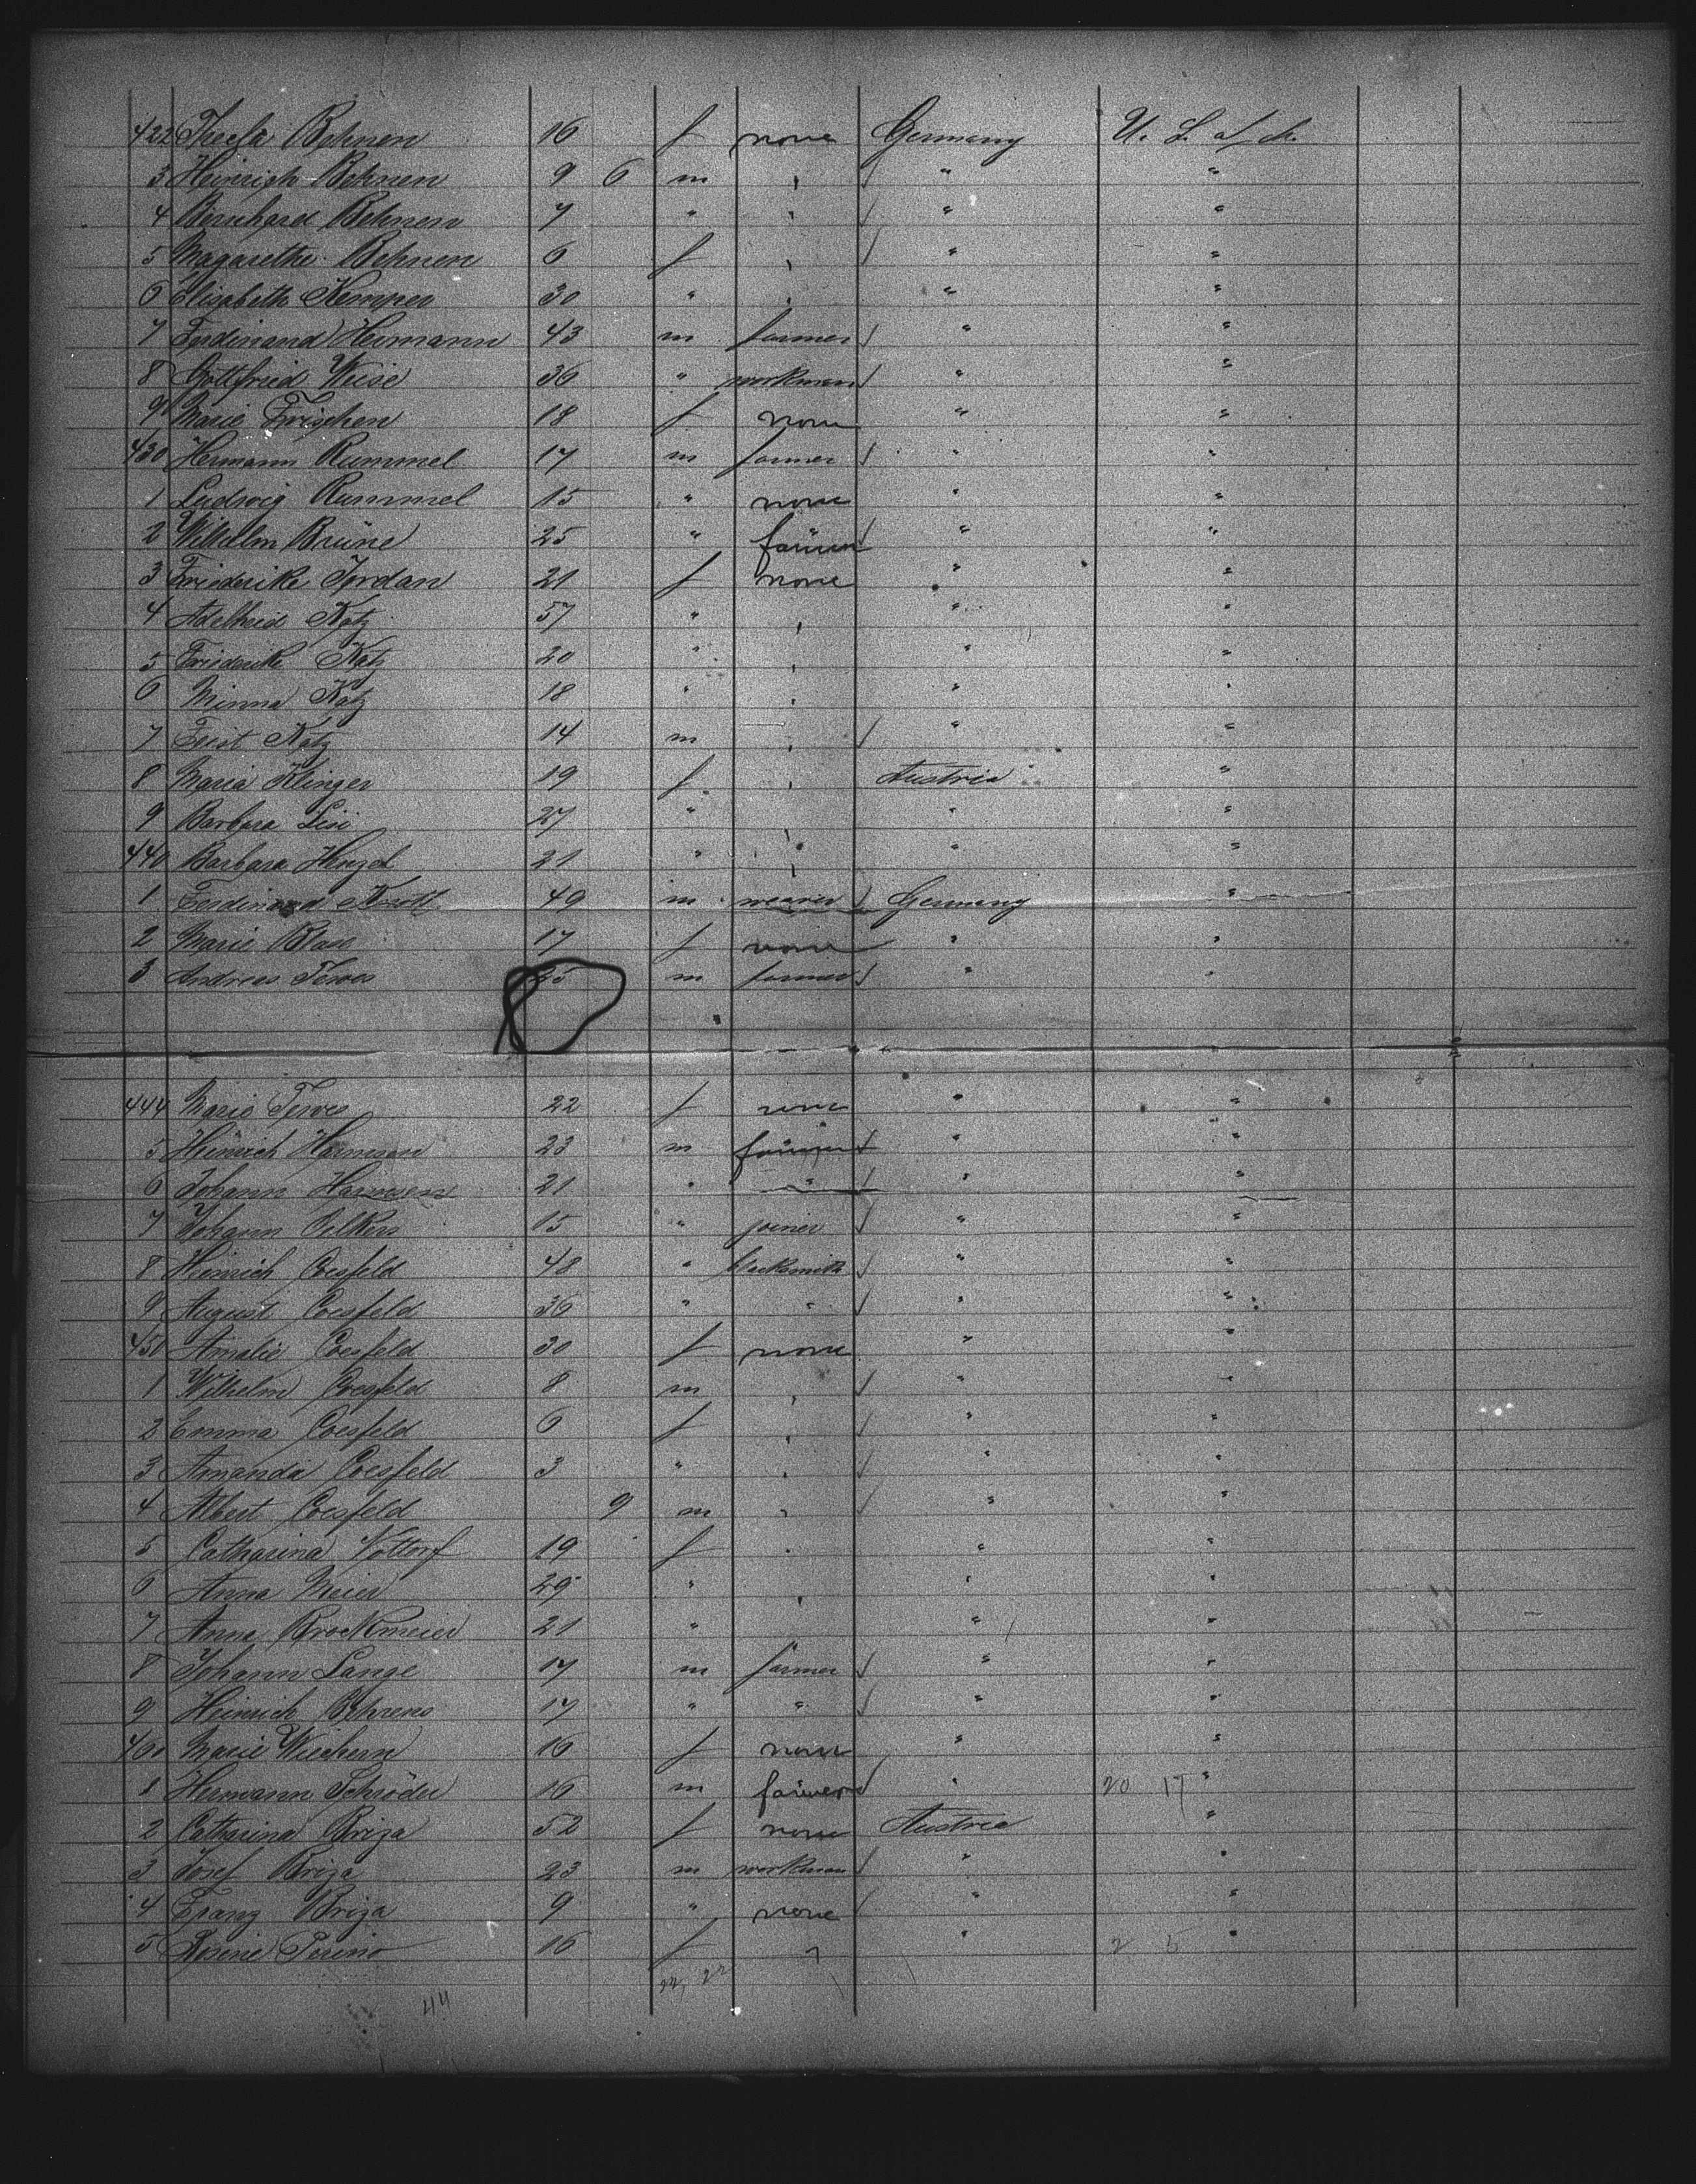 422 Thecla Behnen 16 f none Germany U. S. of A.
3 Heinrich Behnen 9 6 m " / " "
4 Bernhard Behnen 7 " " / " "
5 Magarethe Behnen 6 f " / " "
6 Elisabeth Kemper 30 " " " "
7 Ferdinand Heimann 43 m farmer / " "
8 Gottfried Weise 36 " workman / " "
9 Marie Frischen 18 f none " "
430 Hermann Rummel 17 m farmer / " "
1 Ludwig Rummel 15 " none " "
2 Wilhelm Brüne 25 " farmer / " "
3 Friederike Jordan 21 f none " "
4 Adelheid Katz 57 " " " "
5 Friederike Katz 20 " " " "
6 Minna Katz 18 " " " "
7 Feist Katz 14 m " / " "
8 Maria Klinger 19 f " Austria "
9 Barbara 27 " " " "
440 Barbara 21 " " " "
1 Ferdinand 49 m weaver / Germany "
2 Marie 17 f none " "
3 Andreas Tewes 25 m farmer / " "
444 Marie Tewes 22 f none " "
5 Heinrich Harmsen 23 m farmer / " "
6 Johann Harmsen 21 " " / " "
7 Johann Oelkers 15 " joiner / " "
8 Heinrich Coesfeld 48 " blacksmith / " "
9 August Coesfeld 36 " " / " "
450 Amalie Coesfeld 30 f none " "
1 Wilhelm Coesfeld 8 m " / " "
2 Emma Coesfeld 6 f " / " "
3 Amanda Coesfeld 3 " " / " "
4 Albert Coesfeld 9 m " / " "
5 Catharina Nottorf 19 f " " "
6 Anna Meier 29 " " " "
7 Anna Brockmeier 21 " " "
8 Johann Lange 17 m farmer / " "
9 Heinrich Behrens 17 " " / " "
460 Marie Wiechern 16 f none " "
1 Hermann Schröder 16 m farmer / " 20 17 "
2 Catharina Briza 52 f none Austria "
3 Josef Briza 23 m workman / " "
4 Franz Briza 9 " none / " "
5 16 f " " "
44